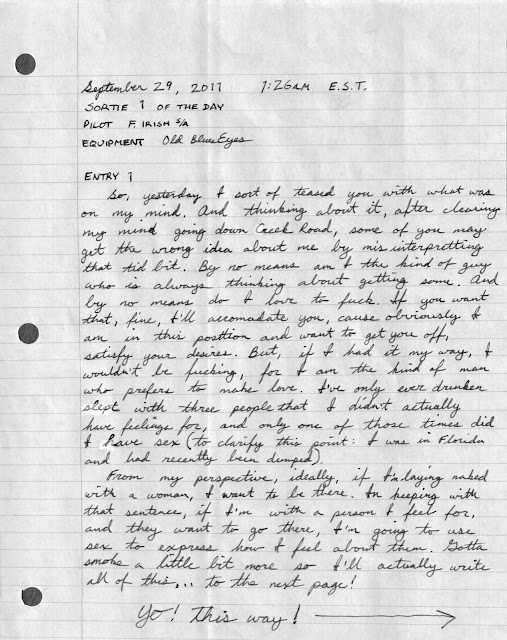 September 29, 2011 1:26AM E.S.T.
SORTIE 1 OF THE DAY
PILOT F. IRISH S/A
EQUIPMENT Old Blue Eyes
ENTRY 1
So, yesterday I sort of teased you with what was
on my mind. And thinking about it, after clearing
my mind going down Creek Road, some of you may
get the wrong idea about me by mis interpretting
that tid bit. By no means am I the kind of guy
who is always thinking about getting some. And
by no means do I love to fuck. If you want
that, fine, I'll accomadate you, cause obviously I
am in this position and want to get you off,
satisfy your desires. But, if I had it my way, I
wouldn't be fucking, for I am the kind of man
who prefers to make love. I've only ever drunken
slept with three people that I didn't actually
have feelings for, and only one of those times did
I have sex (to clarify this point: I was in Florida
and had recently been dumped).
From my perspective, ideally, if I'm laying naked
with a woman, I want to be there. In keeping with
that sentence, if I'm with a person I feel for,
and they want to go there, I'm going to use
sex to express how I feel about them. Gotta
smoke a little bit more so I'll actually write
all of this... to the next page!
Yo! this way!